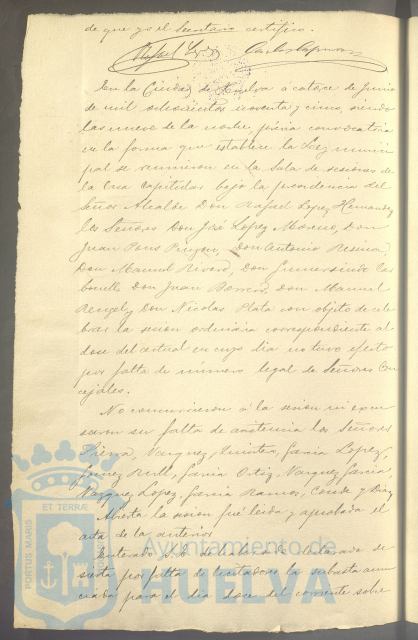 de que yo el Secretario certifico.
Rafael López Carlos
En la Ciudad de Huelva á catorce de Junio
de mil ochocientos noventa y cinco, siendo
las nueve de la noche, prévia convocatoria
en la forma que establece la Ley munici
pal se reunieron en la Sala de sesiones de
la Casa Capitular bajo la presidencia del
Señor Alcalde Don Rafael Lopez Hernandez
los Señores Don José López Moreno, Don
Juan Pons Don Antonio
Don Manuel Rivero, Don Gumersindo Car
bonell Don Juan Don Manuel
Rengel y Don Nicolas Plata con objeto de cele
brar la sesion ordinaria correspondiente al
doce del actual en cuyo dia no tuvo efecto
por falta de número legal de Señores Con
cejales.
No concurrieron á la sesion ni excu
saron su falta de asistencia los Señores
Vazquez, Quintero, Garcia Lopez,
Garcia Ortiz, Vazquez Garcia,
Vazquez Lopez, Garcia Ramos, Conde y Diaz
Abierta la sesion fué leida y aprobada el
acta de la anterior.
Enterado el Cabildo de declarada de
sierta por falta de licitadores la subasta anun
ciada para el dia doce del corriente sobre
PORTUS MARIS ET TERRÆ
Ayuntamiento de
HUELVA